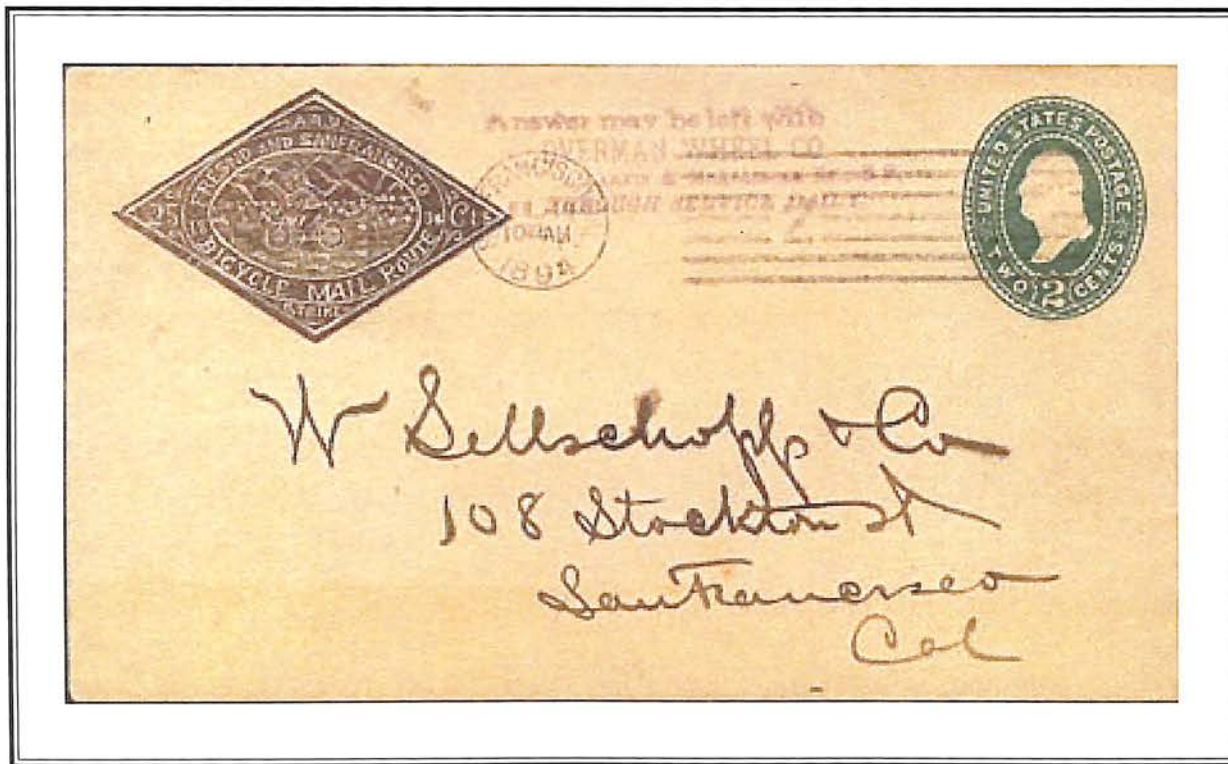 A R U
FRESNO AND SAN FRANCISCO
25 Cts
BICYCLE MAIL ROUTE
STRIKE
Answer may be left with
OVERMAN WHEEL CO
SERVICE DAILY
10 AM
1894
UNITED STATES POSTAGE
TWO 2 CENTS
W Sellschopp & Co
108 Stockton St
San Francisco
Cal